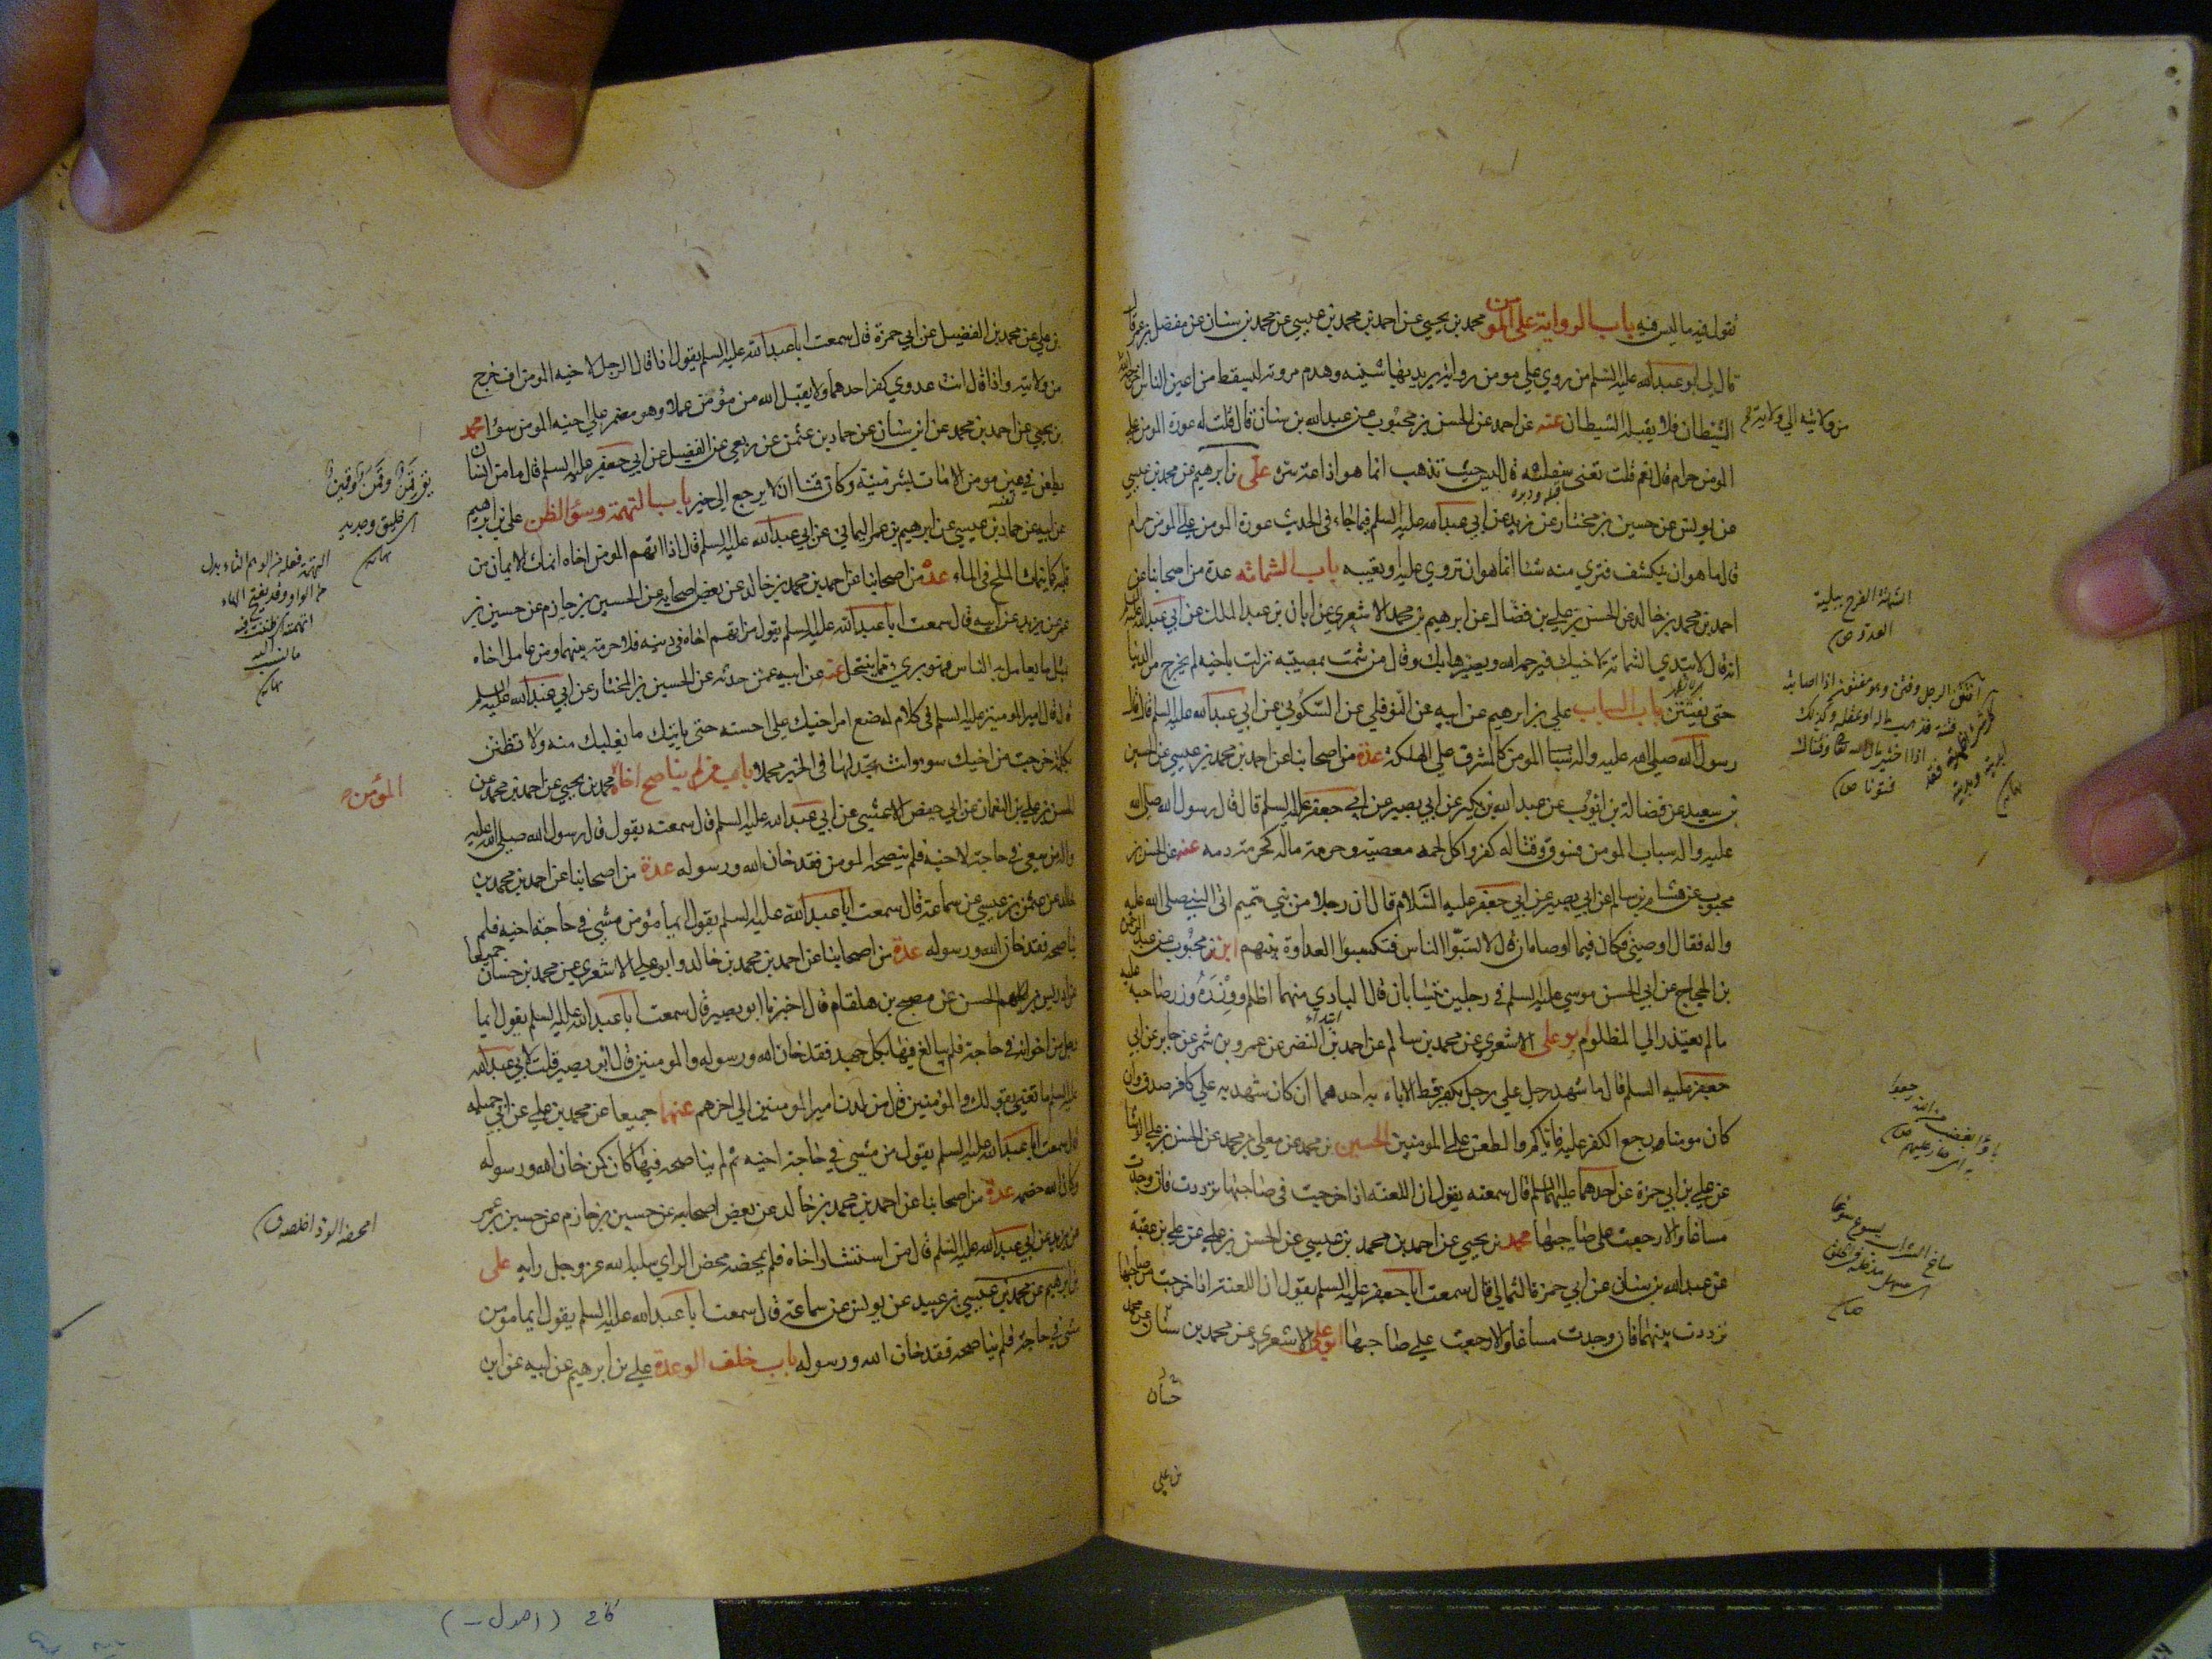 تقول فيه ما ليس فيه باب الرواية على المومن محمد بن يحيى عن احمد بن محمد بن عيسى عن محمد بن سنان عن مفضل بن عمر قال
قال لي ابو عبد الله عليه السلم من روي على مومن رواية يريد بها شينه وهدم مروته ليسقط من اعين الناس اخرجه الله
من ولايته الى ولاية
الشيطان فلا يقبله الشيطان عنه عن احمد عن الحسن بن محبوب عن عبد الله بن سنان قال قلت له عورة المومن على
المومن حرام قال نعم قلت تعني سفليه قال ليس حيث تذهب انما هو اذاعة سره على بن ابرهيم عن محمد بن عيسى
قبله ودبره
عن يونس عن حسين بن مختار عن زيد عن ابي عبد الله عليه السلم فيما جاء في الحديث عورة المومن على المومن حرام
قال ما هو ان يكشف فتري منه شيئا انما هو ان تروي عليه او تعيبه باب الشماتة عدة من اصحابنا عن
احمد بن محمد بن خالد عن الحسن بن علي بن فضال عن ابرهيم بن محمد الاشعري عن ابان بن عبد الملك عن ابي عبد الله عليه السلم
انه قال لا تبدي الشماتة لاخيك فيرحمه الله ويصيرها بك وقال من شمت بمصيبة نزلت باخيه لم يخرج من الدنيا
حتى يفتتن باب السباب علي بن ابرهيم عن ابيه عن النوفلي عن السكوني عن ابي عبد الله عليه السلم قال قال
رسول الله صلى الله عليه واله سباب المومن كالمشرف على الهلكة عدة من اصحابنا عن احمد بن محمد بن عيسى عن الحسين
بن سعيد عن فضالة بن ايوب عن عبد الله بن بكير عن ابي بصير عن ابي جعفر عليه السلم قال قال رسول الله صلى الله
عليه واله سباب المومن فسوق وقتاله كفر واكل لحمه معصية وحرمة ماله كحرمة دمه عنه عن الحسن بن
محبوب عن هشام بن سالم عن ابي بصير عن ابي جعفر عليه السلام قال ان رجلا من بني تميم اتى النبي صلى الله عليه
واله فقال اوصيني فكان فيما اوصاه ان قال لا تسبوا الناس فتكسبوا العداوة بينهم ابن محبوب عن عبد الرحمن
بن الحجاج عن ابي الحسن موسى عليه السلم في رجلين يتسابان قال البادي منهما اظلم ووزره ووزر صاحبه عليه
ما لم يعتذر الى المظلوم ابو علي الاشعري عن محمد بن سالم عن احمد بن النضر عن عمرو بن شمر عن جابر عن ابي
جعفر عليه السلم قال ما شهد رجل على رجل بكفر قط الا باء به احدهما ان كان شهد به على كافر صدق وان
كان مومنا رجع الكفر عليه فاياكم والطعن على المومنين الحسين بن محمد عن معلى بن محمد عن الحسن بن علي الوشا
عن علي بن ابي حمزة عن احدهما عليهما السلم قال سمعته يقول ان اللعنة اذا خرجت في صاحبها ترددت فان وجدت
مساغا والا رجعت على صاحبها محمد بن يحيى عن احمد بن محمد بن عيسى عن الحسن بن علي عن علي بن عقبة
عن عبد الله بن سنان عن ابي حمزة الثمالي قال سمعت ابا جعفر عليه السلم يقول ان اللعنة اذا خرجت من صاحبها
ترددت بينهما فان وجدت مساغا والا رجعت على صاحبها ابو علي الاشعري عن محمد بن سنان عن محمد
حسان
بن علي
الشماتة الفرح ببلية
العدو ص
بن علي عن محمد بن الفضيل عن ابي حمزة قال سمعت ابا عبد الله عليه السلم يقول اذا قال الرجل لاخيه المومن اف خرج
من ولايته واذا قال انت عدوي كفر احدهما ولا يقبل الله من مؤمن عملا وهو مضمر على اخيه المومن سوءا محمد
بن يحيى عن احمد بن محمد عن ابن سنان عن حماد بن عثمن عن ربعي عن الفضيل عن ابي جعفر عليه السلم قال ما من انسان
يطعن في عين مومن الا مات بشر ميتة وكان قمنا ان لا يرجع الى خير باب التهمة وسؤ الظن علي بن ابرهيم
عن ابيه عن حماد بن عيسى عن ابرهيم بن عمر اليماني عن ابي عبد الله عليه السلم قال اذا اتهم المومن اخاه انماث الايمان من
قلبه كما ينماث الملح في الماء عدة من اصحابنا عن احمد بن محمد بن خالد عن بعض اصحابه عن الحسين بن حازم عن حسين بن
عمر بن يزيد عن ابيه قال سمعت ابا عبد الله عليه السلم يقول من اتهم اخاه في دينه فلا حرمة بينهما ومن عامل اخاه
بمثل ما يعامل به الناس فهو بري مما ينتحل عنه عن ابيه عمن حدثه عن الحسين بن المختار عن ابي عبد الله عليه السلم
قال قال امير المومنين عليه السلم في كلام له ضع امر اخيك على احسنه حتى ياتيك ما يغلبك منه ولا تظنن
بكلمة خرجت من اخيك سوء وانت تجد لها في الخير محملا باب من لم يناصح اخاه محمد بن يحيى عن احمد بن محمد عن
المؤمن
الحسن بن علي بن النعمان عن ابي حفص الاعشى عن ابي عبد الله عليه السلم قال سمعته يقول قال رسول الله صلى الله عليه
واله من سعى في حاجة لاخيه فلم ينصحه المومن فقد خان الله ورسوله عدة من اصحابنا عن احمد بن محمد بن
خالد عن عثمن بن عيسى عن سماعة قال سمعت ابا عبد الله عليه السلم يقول ايما مؤمن مشى في حاجة اخيه فلم
يناصحه فقد خان الله ورسوله عدة من اصحابنا عن احمد بن محمد بن خالد وابو علي الاشعري عن محمد بن حسان جميعا
عن ادريس بن الحسن عن مصبح بن هلقام قال اخبرنا ابو بصير قال سمعت ابا عبد الله عليه السلم يقول ايما
رجل من اخوانه في حاجة فلم يبالغ فيها بكل جهد فقد خان الله ورسوله والمومنين قال ابو بصير قلت لابي عبد الله
عليه السلم ما تعني بقولك والمؤمنين قال من لدن امير المومنين الى اخرهم عنهما جميعا عن محمد بن علي عن ابي جميله
قال سمعت ابا عبد الله عليه السلم يقول من مشى في حاجة اخيه ثم لم يناصحه فيها كان كمن خان الله ورسوله
وكان الله خصمه عدة من اصحابنا عن احمد بن محمد بن خالد عن بعض اصحابه عن حسين بن حازم عن حسين بن عمر
بن يزيد عن ابي عبد الله عليه السلم قال من استشار اخاه فلم يمحضه محض الراي سلبه الله عز وجل رايه على
امحضه الود اخلصه ق
بن ابرهيم عن محمد بن عيسى بن عبيد عن يونس عن سماعة قال سمعت ابا عبد الله عليه السلم يقول ايما مومن
مشى في حاجة فلم يناصحه فقد خان الله ورسوله باب خلف الوعدة علي بن ابرهيم عن ابيه عن ابن
كافي (اصول -)